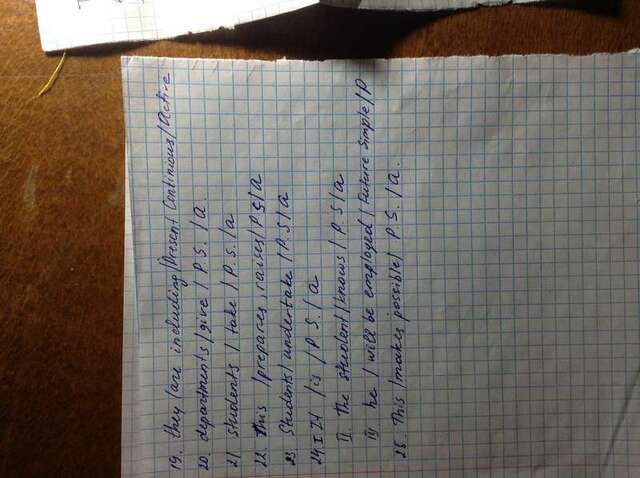 19. they /are including/Present Continuous/Active
20. departments/give / P.S. / a
21 students / take / P.S. / a
22. This /prepares, raises/P.S/a
23. Students/undertake / P.S/ a
24. I It /is / P.S. / a
II. The student/knows / P.S / a
III he / will be employed / Future Simple / P
25. This /makes possible/ P.S. / a.